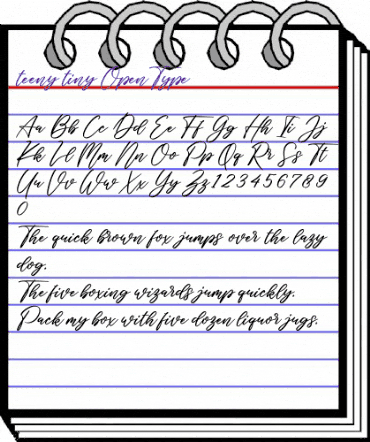 teeny tiny Open Type
Aa Bb Cc Dd Ee Ff Gg Hh Ii Jj
Kk Ll Mm Nn Oo Pp Qq Rr Ss Tt
Uu Vv Ww Xx Yy Zz 1 2 3 4 5 6 7 8 9
0
The quick brown fox jumps over the lazy
dog.
The five boxing wizards jump quickly.
Pack my box with five dozen liquor jugs.